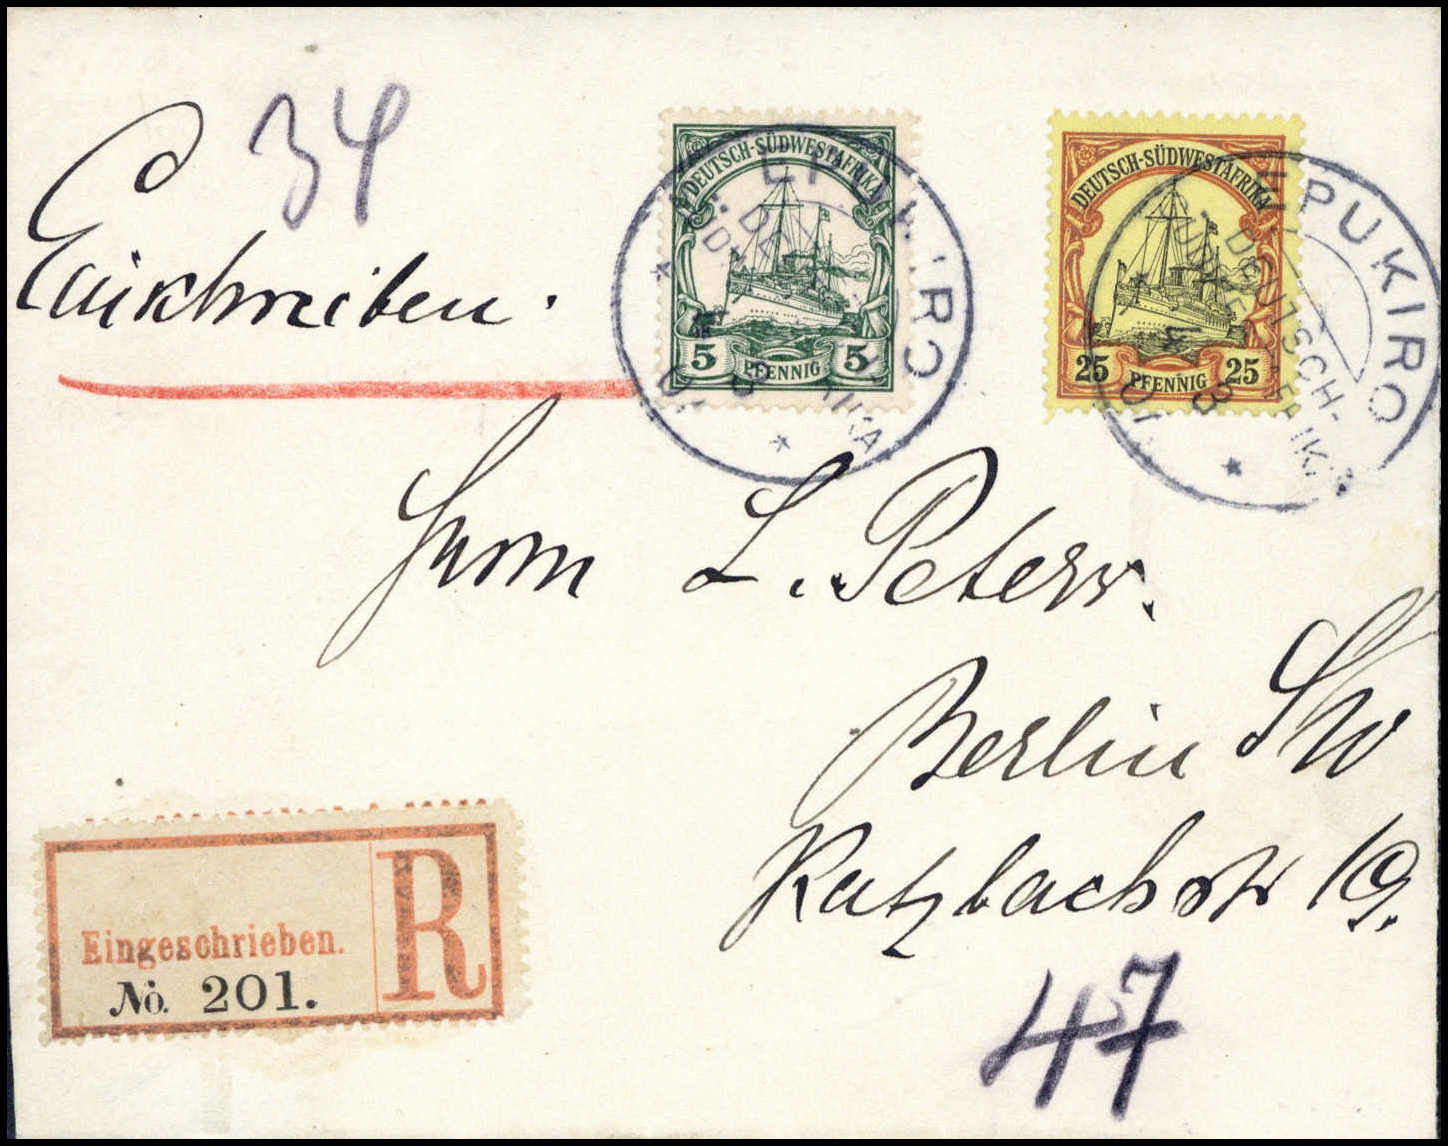 34
Einschreiben.
DEUTSCH-SÜDWESTAFRIKA
5 PFENNIG 5
DEUTSCH-SÜDWESTAFRIKA
25 PFENNIG 25
EPUKIRO
DEUTSCH-
Herrn L. Peters.
Berlin SW
Katzbachstr 19.
Eingeschrieben.
No. 201.
R
47